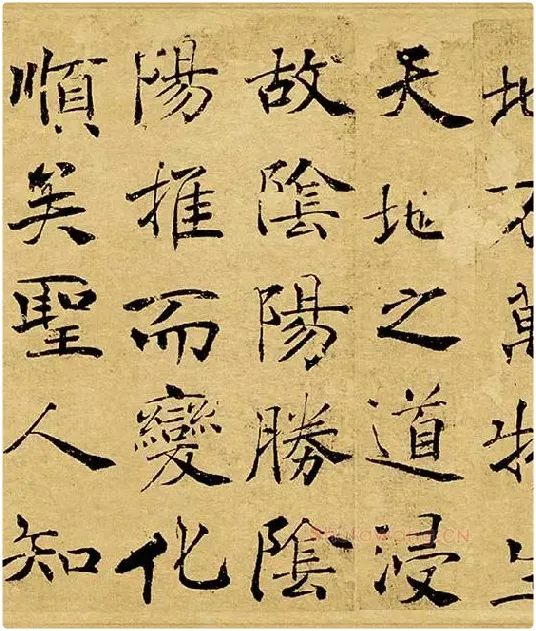 地萬物生
天地之道浸
故陰陽勝陰
陽推而變化
順矣聖人知